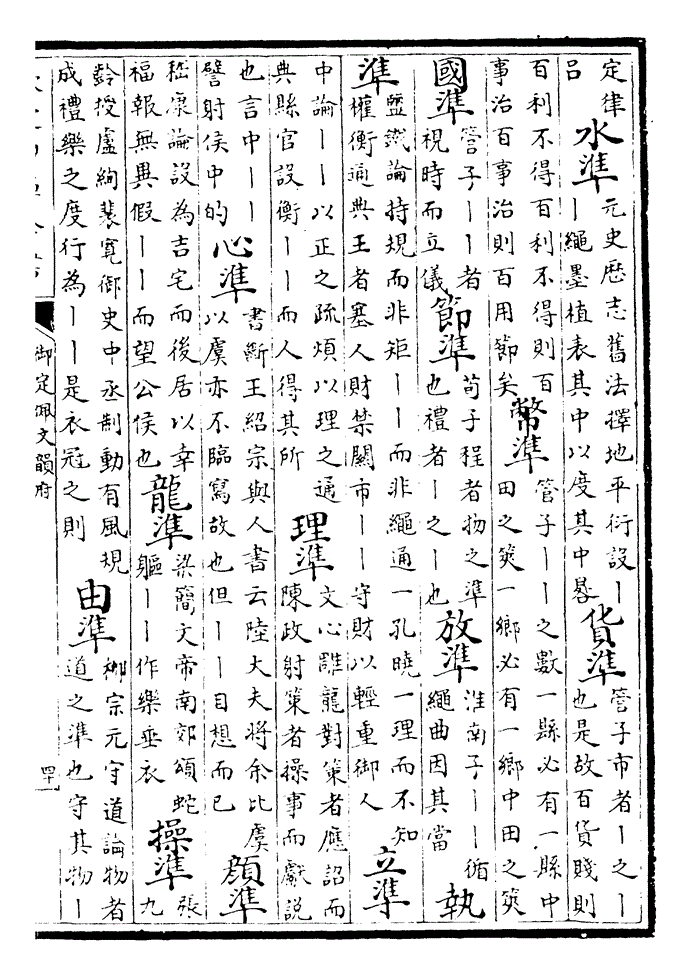 定律呂水準元史歷志舊法擇地平衍設丨丨繩墨植表其中以度其中晷貨準管子市者丨之丨也是故百貨賤則
百利不得百利不得則百事治百事治則百用節矣幣準管子丨丨之數一縣必有一縣中田之筴一鄉必有一鄉中田之筴
國準管子丨丨者視時而立儀節準荀子程者物之準也禮者丨之丨也放準淮南子丨丨循繩曲因其當執
準鹽鐵論持規而非矩丨丨而非繩通一孔曉一理而不知權衡通典王者塞人財禁關市丨丨守財以輕重御人立準
中論丨丨以正之疏煩以理之通典縣官設衡丨丨而人得其所理準文心雕龍對策者應詔而陳政射策者操事而獻說
也言中丨丨譬射侯中的心準書斷王紹宗與人書云陸大夫將余比虞以虞亦不臨寫故也但丨丨目想而已顏準
嵇康論設為吉宅而後居以幸福報無異假丨丨而望公侯也龍準梁簡文帝南郊頌蛇軀丨丨作樂垂衣操準張九
齡授盧絢裴寬御史中丞制動有風規成禮樂之度行為丨丨是衣冠之則由準柳宗元守道論物者道之準也守其物丨
御定佩文韻府